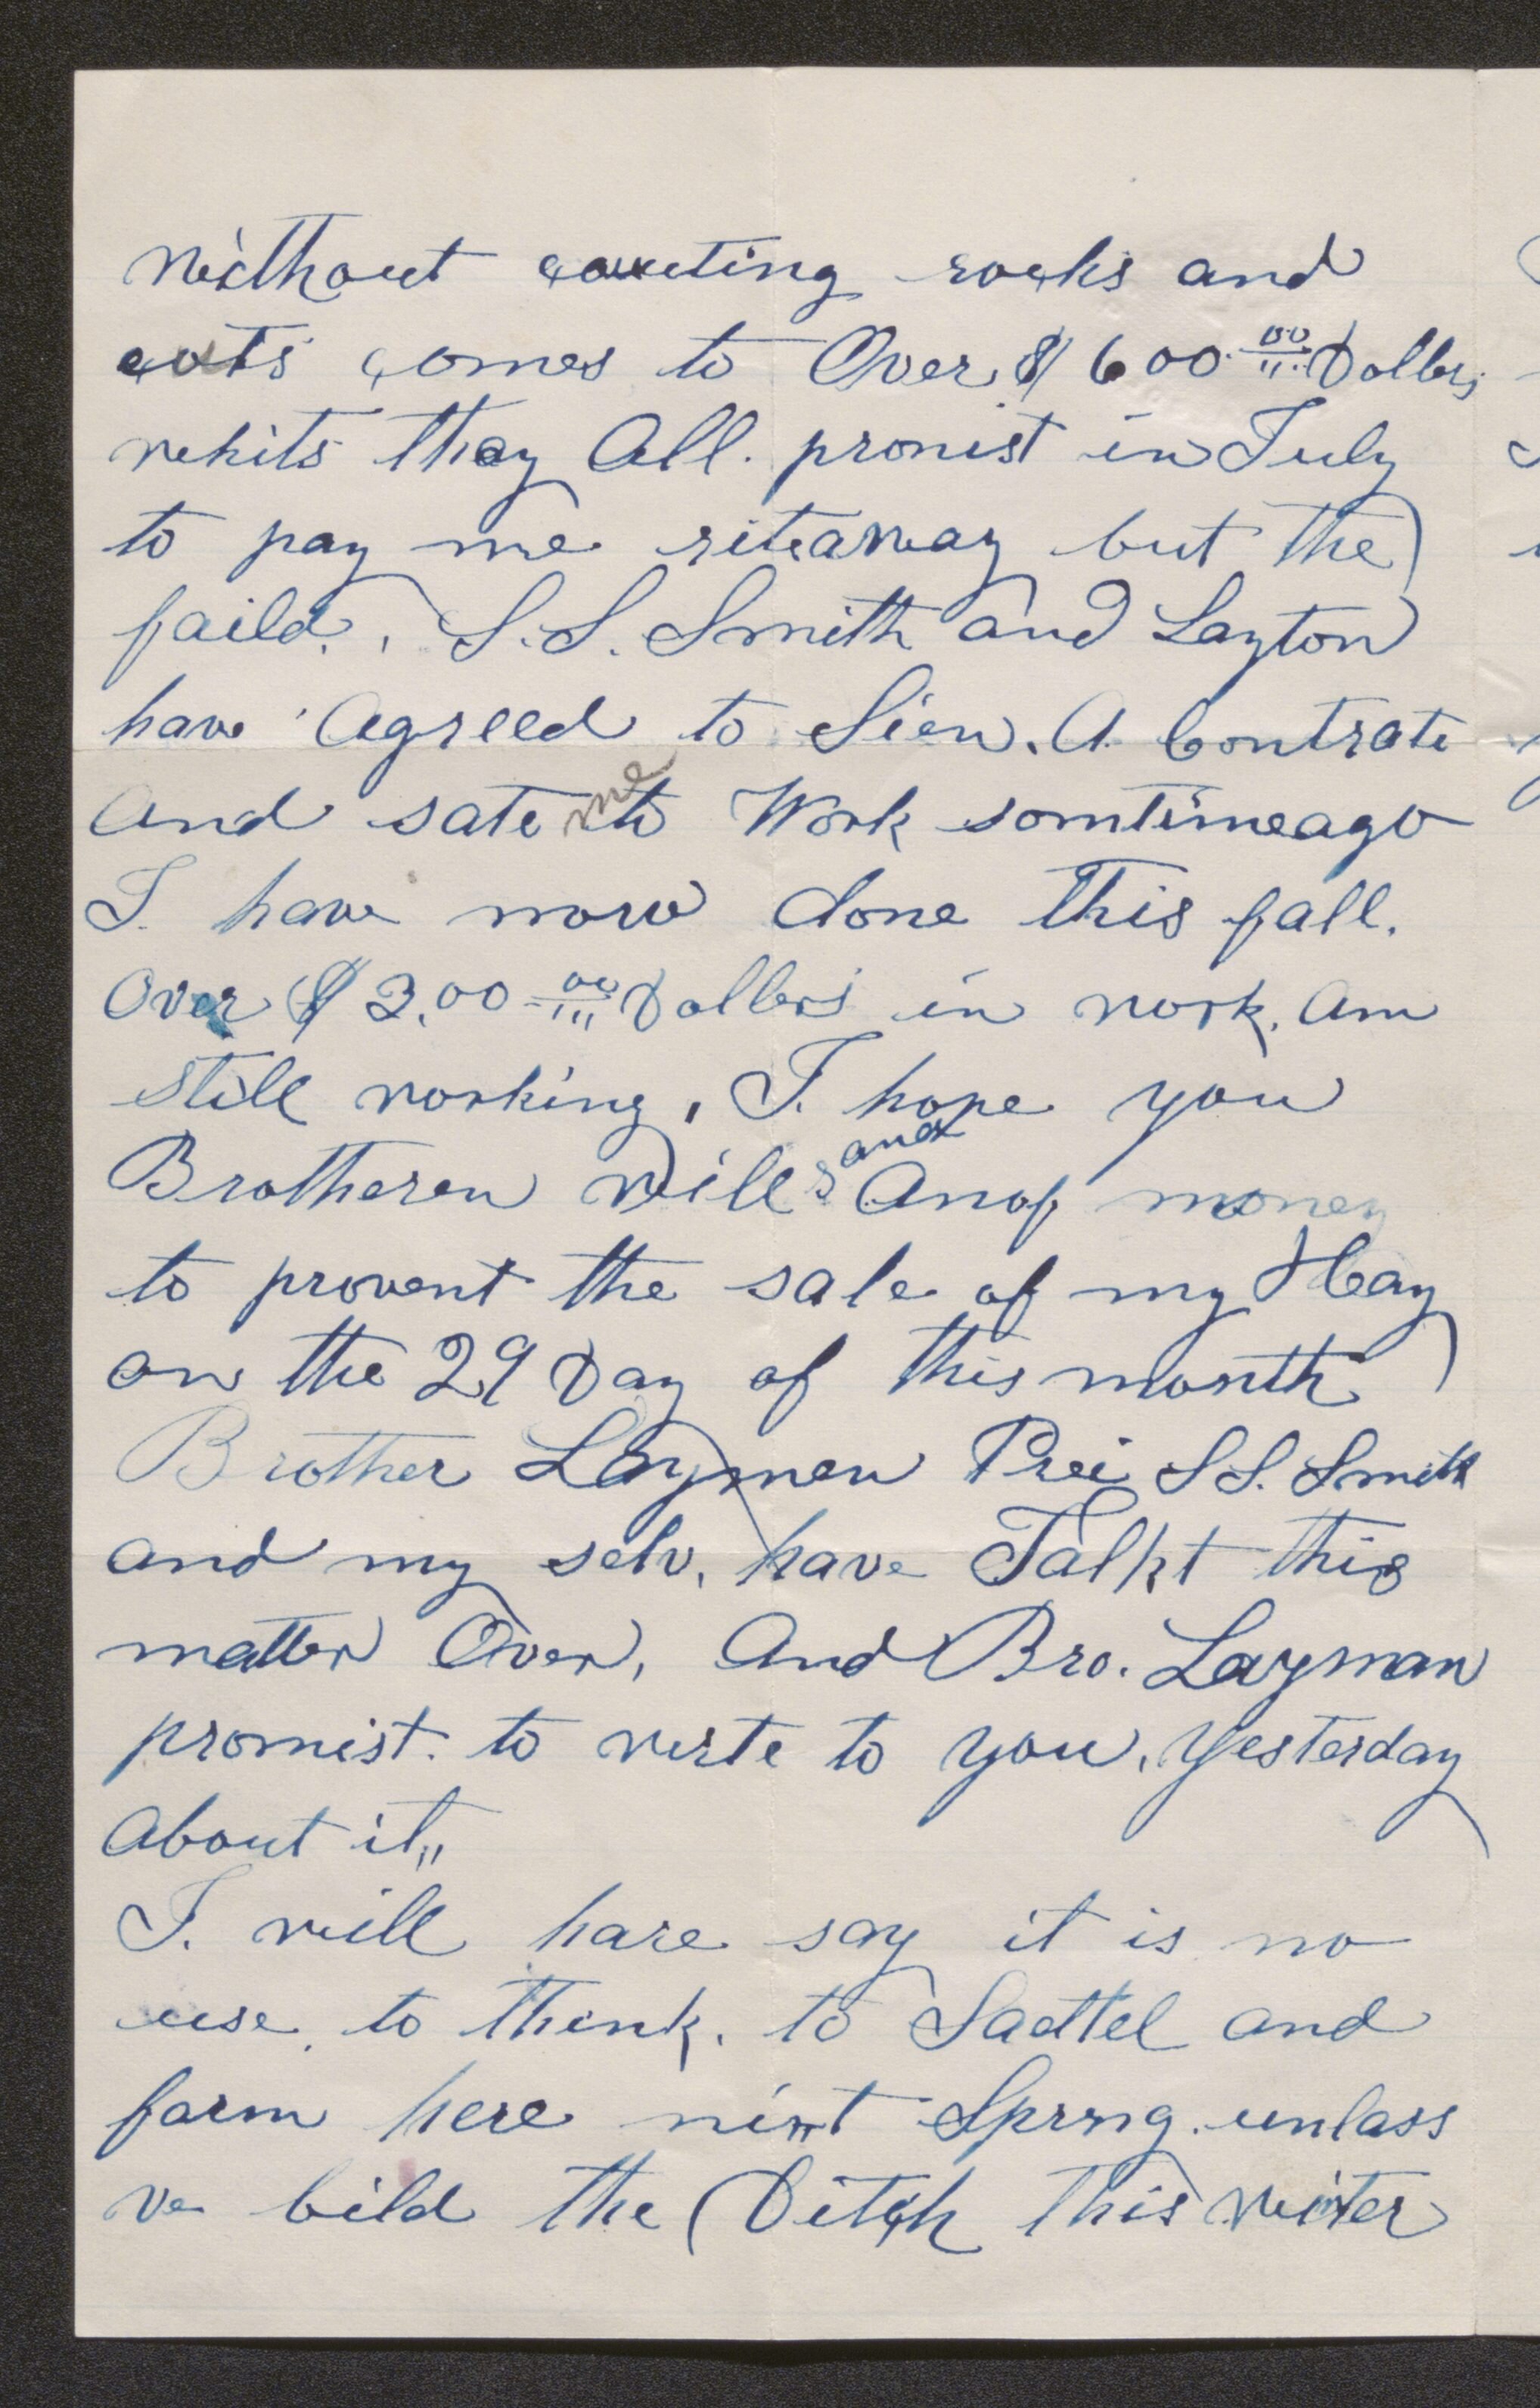 Without counting rocks and
cots comes to Over $600 00 Dollers
whits they All. promist in July
to pay me riteaway but the
faild., S.S. Smith and Layton
have Agreed to Sien. A. Contrate
And sate me to Work somtimeago
I. have now done this fall.
Over $ 2.00 00 Dollers in work. Am
still working, I. hope you
Brotheren will sand Anof money
to provent the sale of my Hay
on the 29 Day of this month
Brother Laymen Prei S S. Smith
and my selv, have Talkt this
matter Over, And Bro. Layman
promist. to wrte to you, Yesterday
About it,,
I. will hare say it is no
use, to think. to Sadtel and
farm here nixt Sprng. unlass
ve bild the Ditch this winter